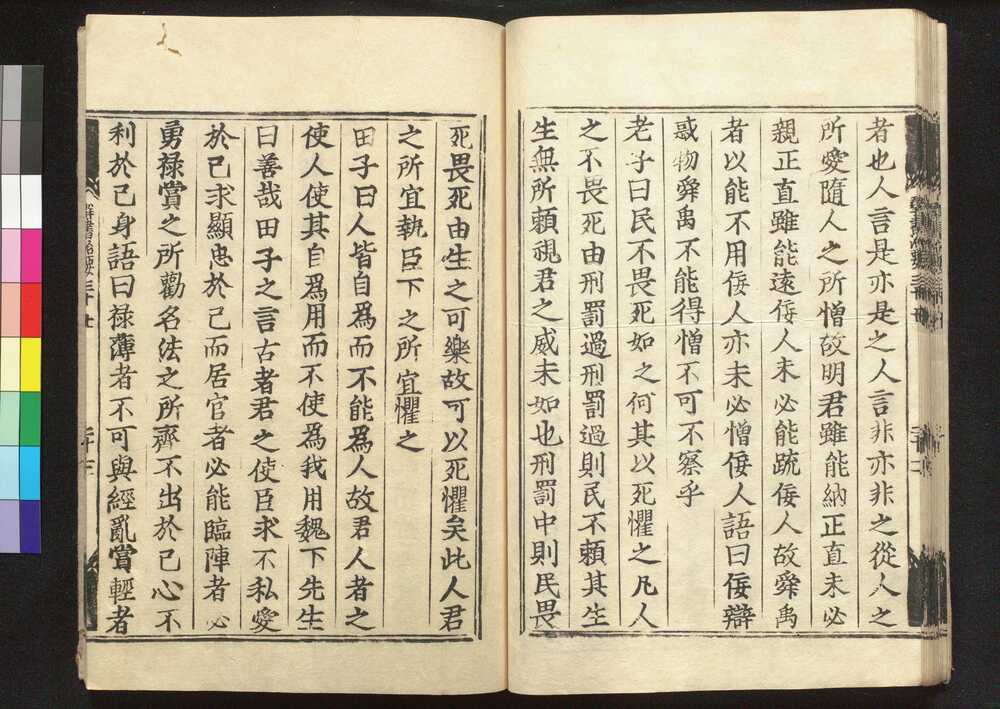 者也人言是亦是之人言非亦非之從人之
所愛隨人之所憎故明君雖能納正直未必
親正直雖能遠佞人未必能疏佞人故舜禹
者以能不用佞人亦未必憎佞人語曰佞辯
惑物舜禹不能得憎不可不察乎
老子曰民不畏死如之何其以死懼之凡人
之不畏死由刑罰過刑罰過則民不賴其生
生無所賴視君之威未如也刑罰中則民畏
死畏死由生之可樂故可以死懼矣此人君
之所宜執臣下之所宜懼之
田子曰人皆自爲而不能爲人故君人者之
使人使其自爲用而不使爲我用魏下先生
曰善哉田子之言古者君之使臣求不私愛
於己求顯忠於己而居官者必能臨陣者必
勇禄賞之所勸名法之所齊不出於己心不
利於己身語曰禄薄者不可與經亂賞輕者
群書治要三十七